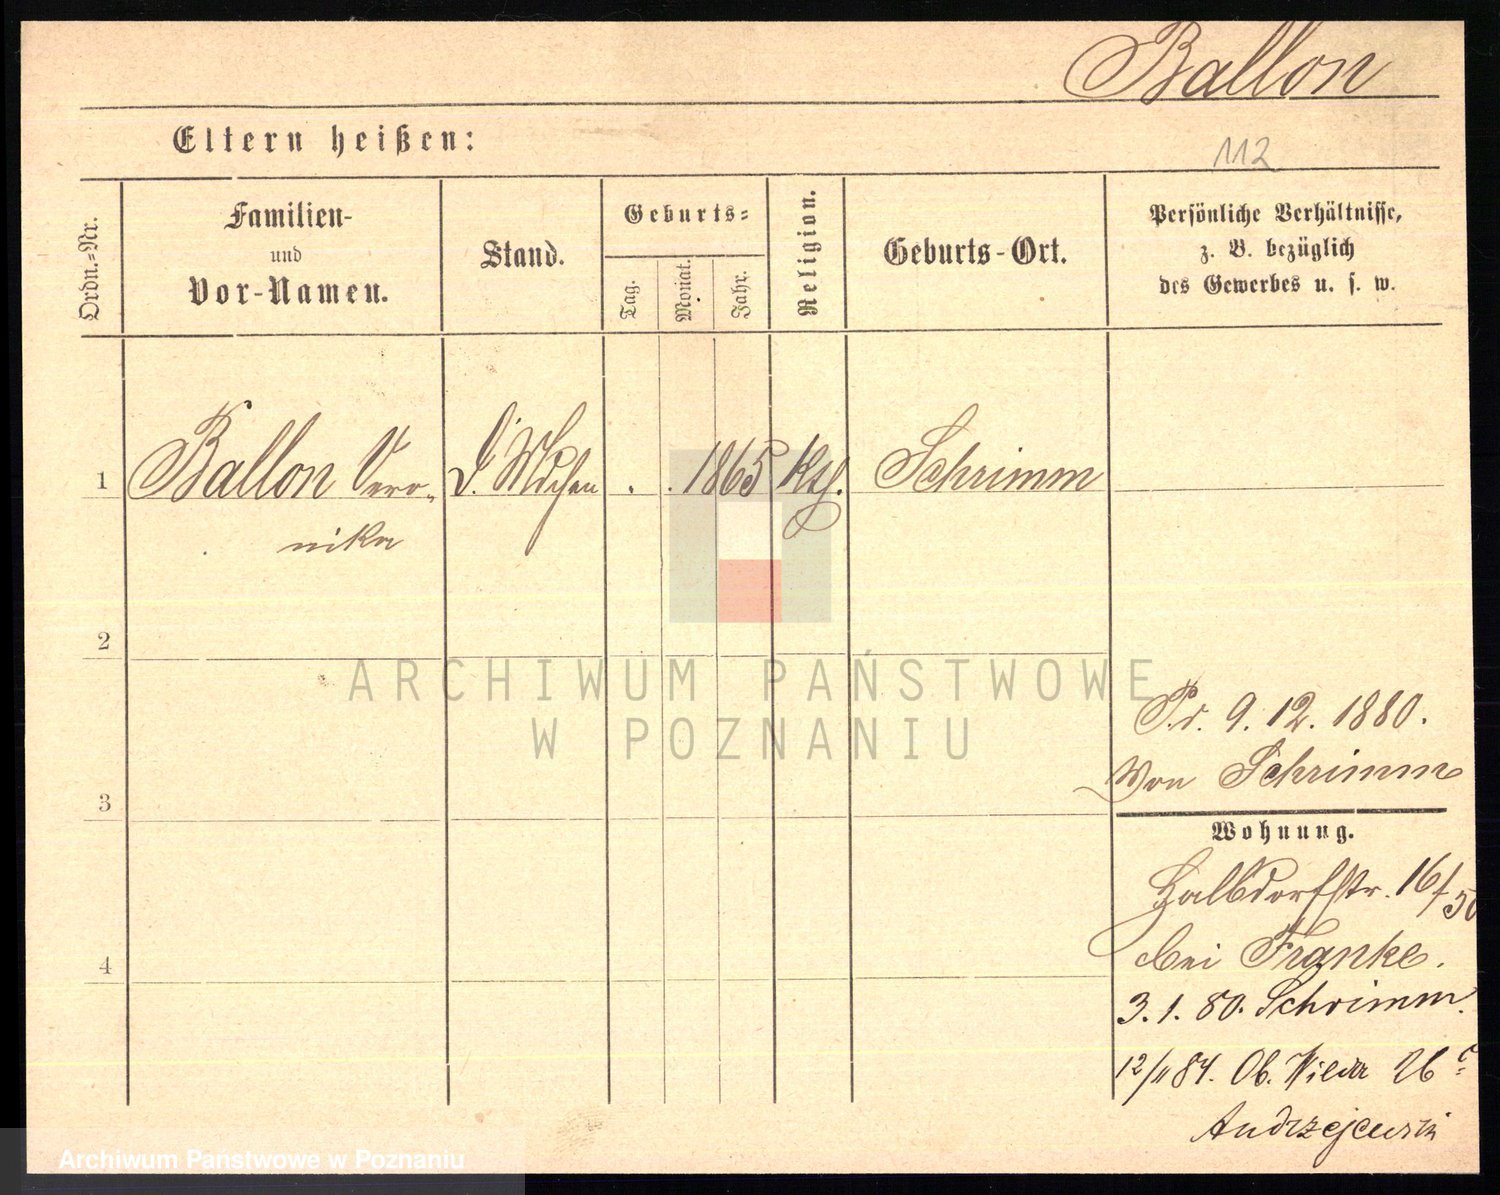 Ballon
Eltern heißen:
112
Ordn.-Nr.
Familien-
und
Vor-Namen.
Stand.
Geburts-
Tag.
Monat.
Jahr.
Religion.
Geburts-Ort.
Persönliche Verhältnisse,
z. B. bezüglich
des Gewerbes u. s. w.
1
Ballon Vero-
nika
D. Mdchen
1865
Kth.
Schrimm
2
3
4
Pr. 9. 12. 1880.
Von Schrimm
Wohnung.
Halbdorfstr. 16/50
bei Franke.
3. 1. 80. Schrimm.
12/11 84. Ob. Wilda 26
Andrzejewski
ARCHIWUM PAŃSTWOWE
W POZNANIU
Archiwum Państwowe w Poznaniu